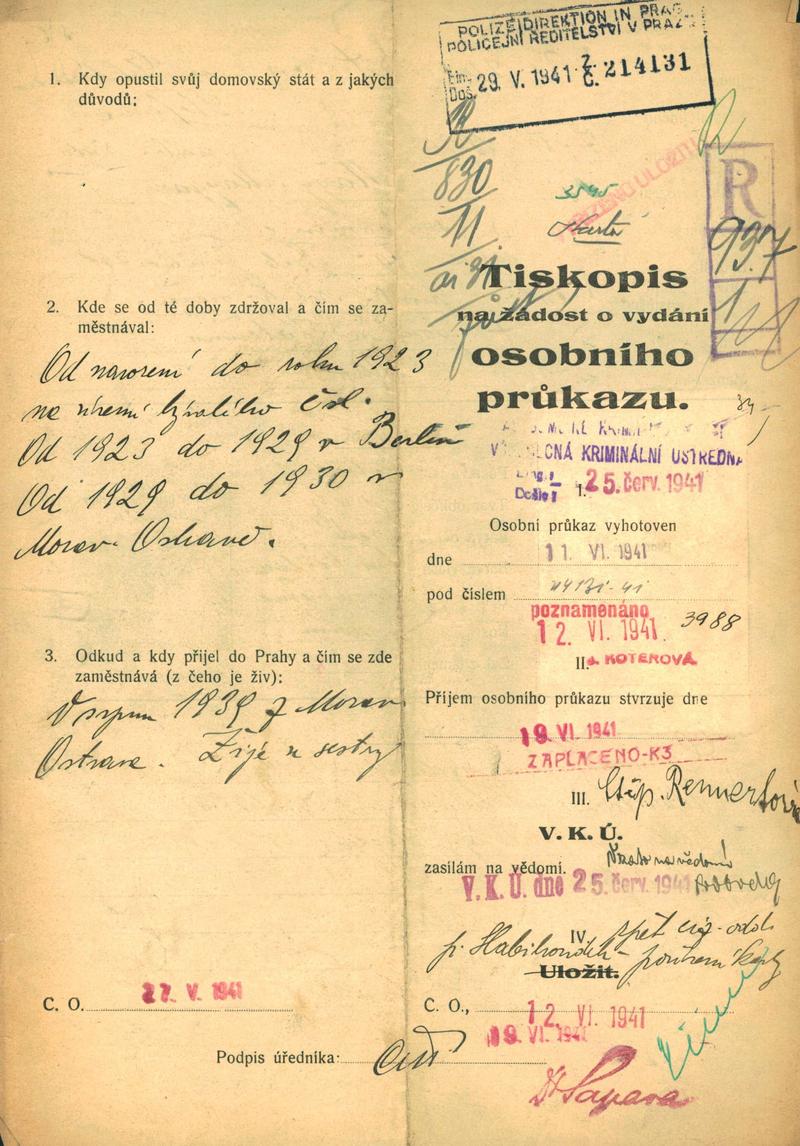 1. Kdy opustil svůj domovský stát a z jakých
důvodů:
2. Kde se od té doby zdržoval a čím se za-
městnával:
Od narození do roku 1923
na území bývalého čsl.
Od 1923 do 1929 v Berlíně
Od 1929 do 1930 v
Morav. Ostravě.
3. Odkud a kdy přijel do Prahy a čím se zde
zaměstnává (z čeho je živ):
V srpnu 1939 z Morav.
Ostravy. Žije u sestry
C. O. 27. V. 1941
Podpis úředníka:
POLIZEIDIREKTION IN PRAG
POLICEJNÍ ŘEDITELSTVÍ V PRAZE
Ein.
Doš. 29. V. 1941 Z. Č. 214131
R
830
11
3545
R
937
1
Karta
Tiskopis
na žádost o vydání
osobního
průkazu.
KRIMINÁLNÍ ÚSTŘEDNA
Došlo: 25. červ. 1941
I.
Osobní průkaz vyhotoven
dne 11. VI. 1941
pod číslem
poznamenáno
12. VI. 1941. 3988
II. KOTEROVÁ
Příjem osobního průkazu stvrzuje dne
19. VI. 1941
ZAPLACENO-K3
III.
V. K. Ú.
zasílám na vědomí.
V. K. Ú. dne 25. červ. 1941
IV.
zpět
Uložit.
C. O., 12. VI. 1941
19. VI. 1941